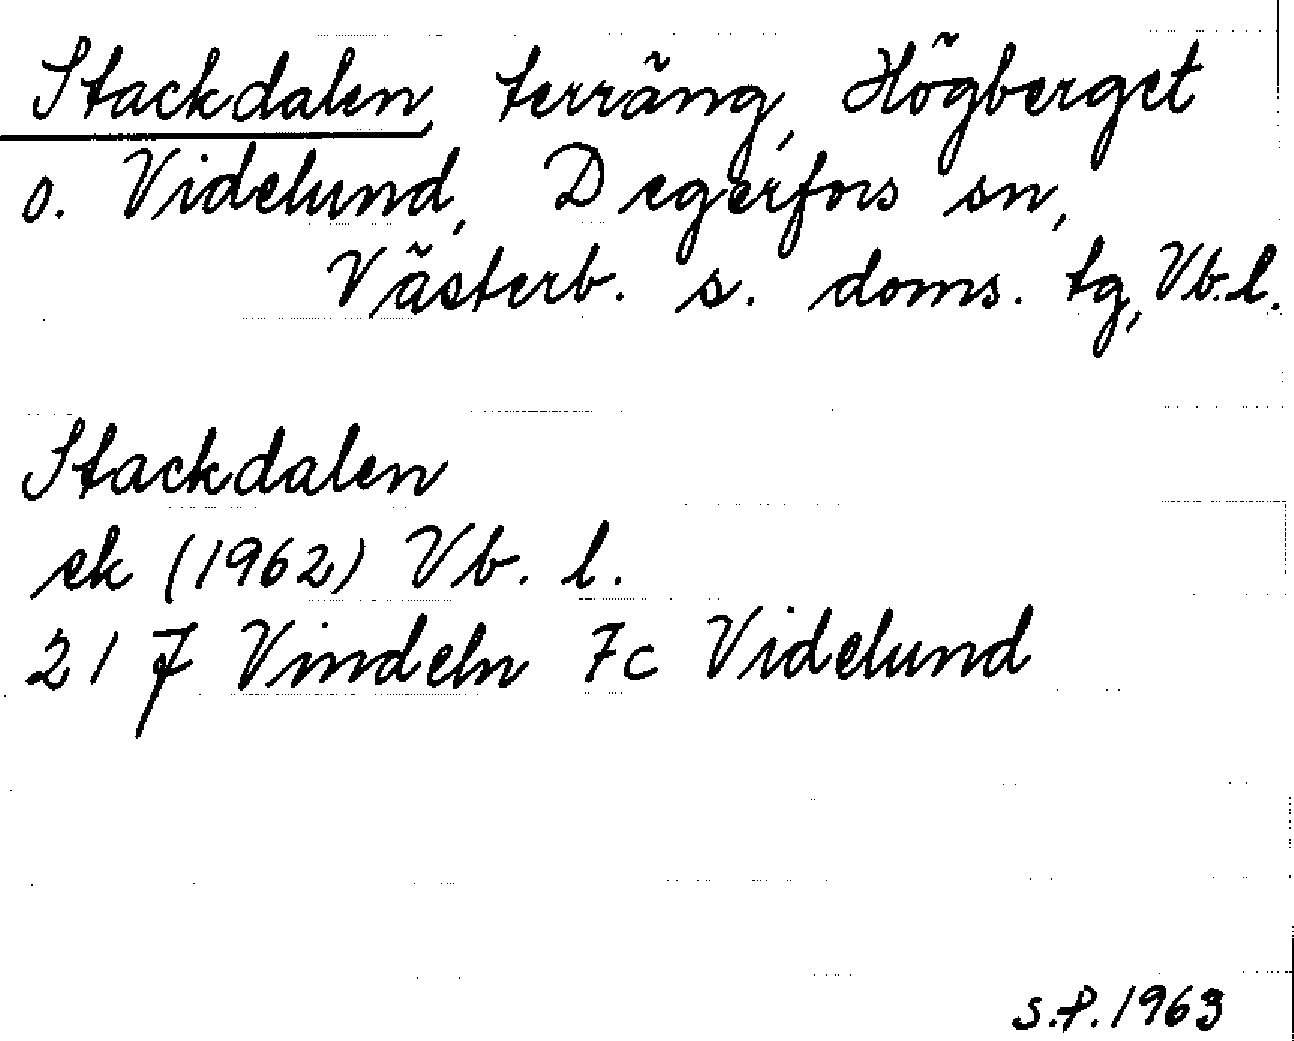 Stackdalen, terräng, Högberget
o. Videlund, Degerfors sn,
Västerb. s. doms. tg, Vb.l.
Stackdalen
ek (1962) Vb. l.
21 J Vindeln 7c Videlund
S.P. 1963